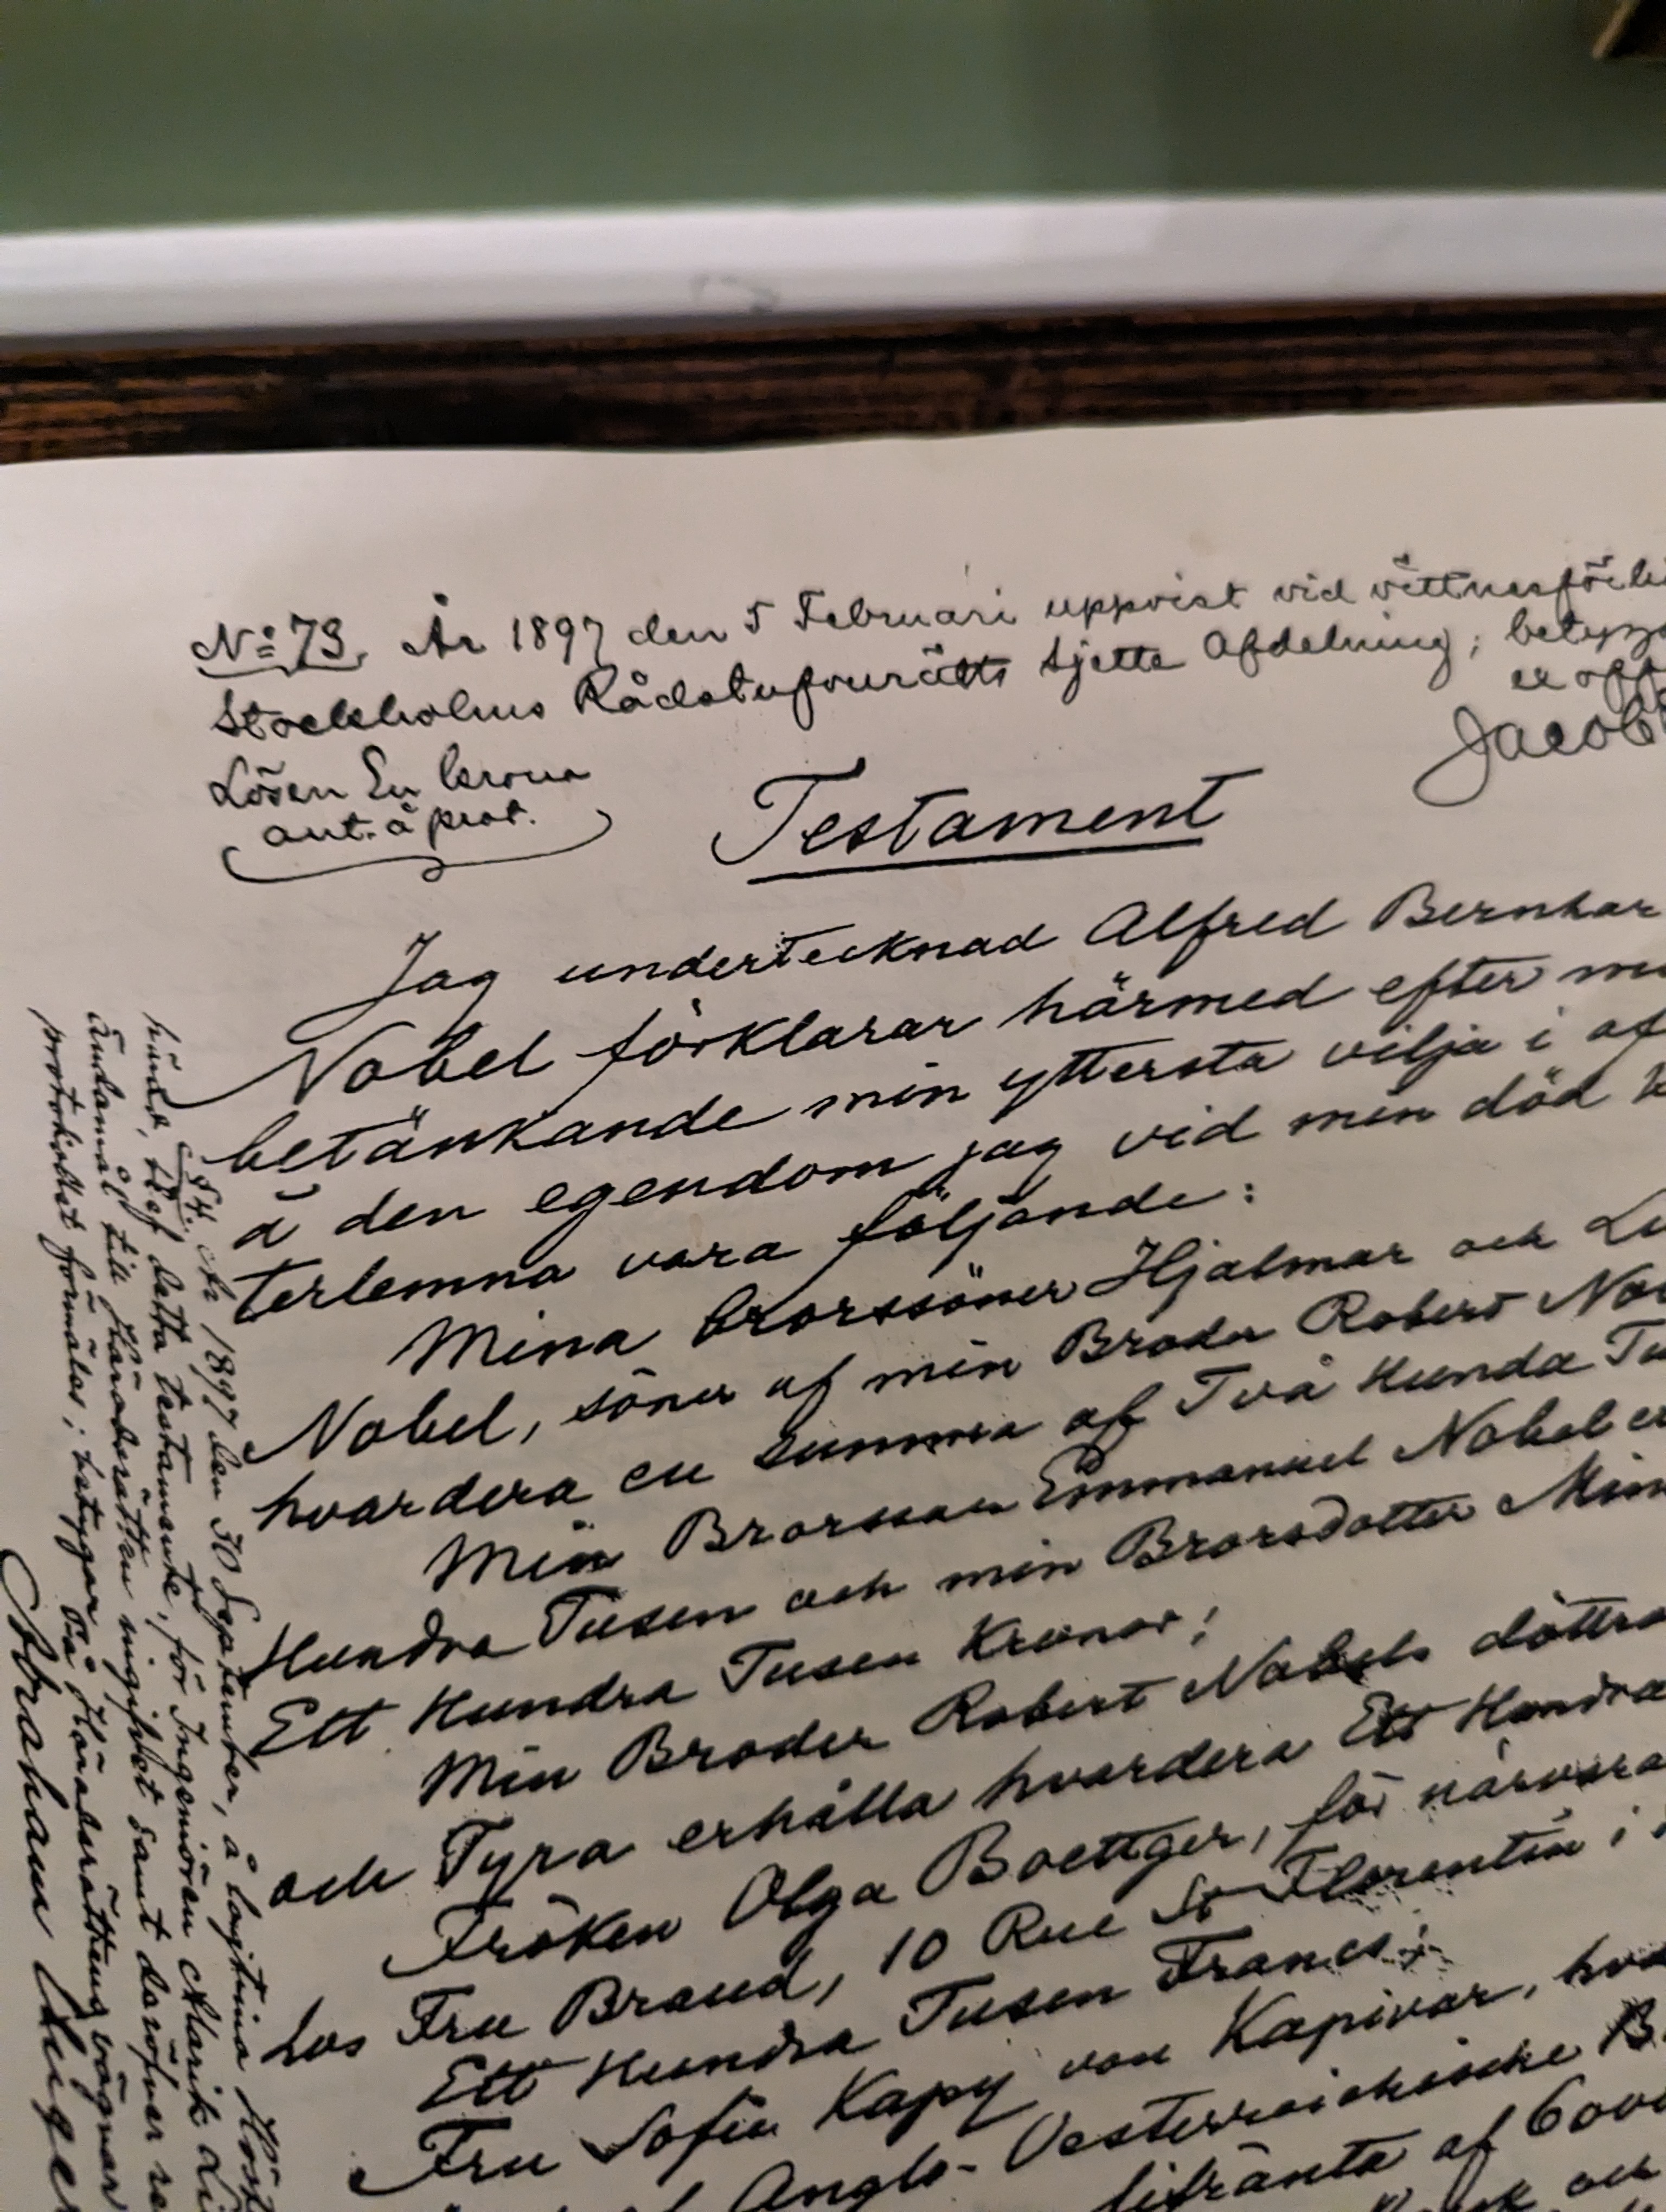 No 73. År 1897 den 5 Februari uppvist vid vittnesförh
Stockholms Rådstufvurätts sjette Afdelning; betyga
ex off
Jacob
Lösen En krona
ant. å prot.
Testament
Jag undertecknad Alfred Bernhar
Nobel förklarar härmed efter mo
betänkande min yttersta vilja i af
å den egendom jag vid min död k
terlemna vara följande:
Mina brorssöner Hjalmar och Lu
Nobel, söner af min Broder Robert No
hvardera en summa af Två Hundra Tu
Min Brorsson Emmanuel Nobel er
Hundra Tusen och min Brorsdotter Min
Ett Hundra Tusen Kronor;
Min Broder Robert Nobels döttra
och Tyra erhålla hvardera Ett Hundra
Fröken Olga Boettger, för närvara
hos Fru Brand, 10 Rue St Florentin i
Ett Hundra Tusen Francs;
Fru Sofie Kapy von Kapivar, hva
Anglo-Oesterreichische B
lifränta af 6000
och
§ 4. År 1897 den 30 September, å lagtima Höst
hörd, blef detta testamente, för Ingeniören Alarik Li
ändamål till Häradsrätten ingifvet samt deröfver
protokollet förmälas; betygar På Häradsrättens vägnar
Abraham Unger